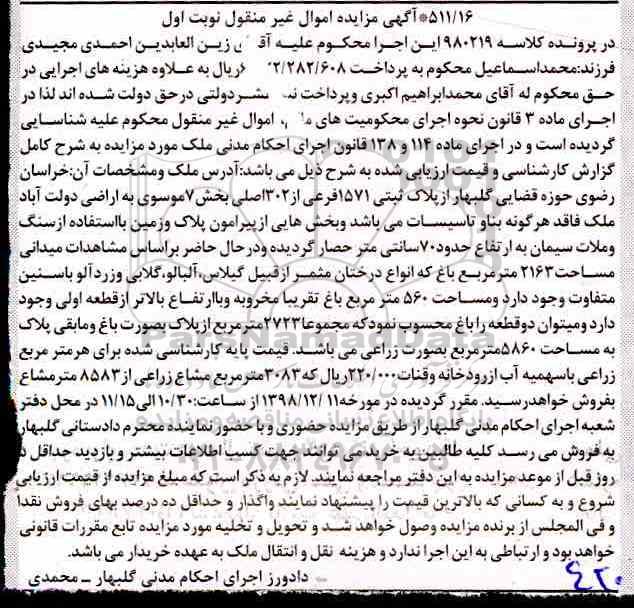 ۵۱۱/۱۶*آگهی مزایده اموال غیر منقول نوبت اول
در پرونده کلاسه ۹۸۰۲۱۹ این اجرا محکوم علیه زین العابدین احمدی مجیدی
فرزند:محمداسماعیل محکوم به پرداخت ریال به علاوه هزینه های اجرایی در
حق محکوم له آقای محمدابراهیم اکبری وپرداخت دولتی درحق دولت شده اند لذا در
اجرای ماده ۳ قانون نحوه اجرای محکومیت های اموال غیر منقول محکوم علیه شناسایی
گردیده است و در اجرای ماده ۱۱۴ و ۱۳۸ قانون اجرای احکام مدنی ملک مورد مزایده به شرح کامل
گزارش کارشناسی و قیمت ارزیابی شده به شرح ذیل می باشد:آدرس ملک ومشخصات آن:خراسان
رضوی حوزه قضایی گلبهار ازپلاک ثبتی ۱۵۷۱فرعی از۳۰۲اصلی بخش۷موسوی به اراضی دولت آباد
ملک فاقد هرگونه بناو تاسیسات می باشد وبخش هایی ازپیرامون پلاک وزمین بااستفاده ازسنگ
وملات سیمان به ارتفاع حدود۷۰سانتی متر حصار گردیده ودرحال حاضر براساس مشاهدات میدانی
مساحت۲۱۶۳ مترمربع باغ که انواع درختان مثمر ازقبیل گیلاس،آلبالو،گلابی وزردآلو باسنین
متفاوت وجود دارد ومساحت ۵۶۰ متر مربع باغ تقریبا مخروبه وباارتفاع بالاتر ازقطعه اولی وجود
دارد ومیتوان دوقطعه را باغ محسوب نمودکه مجموعا۲۷۲۳مترمربع ازپلاک بصورت باغ ومابقی پلاک
به مساحت ۵۸۶۰مترمربع بصورت زراعی می باشد. قیمت پایه کارشناسی شده برای هرمتر مربع
زراعی باسهمیه آب ازرودخانه وقنات۲۲۰/۰۰۰ریال که۳۰۸۳مترمربع مشاع زراعی از۸۵۸۳ مترمشاع
بفروش خواهدرسید. مقرر گردیده در مورخه۱۳۹۸/۱۲/۱۱ از ساعت:۱۰/۳۰الی۱۱/۱۵ در محل دفتر
شعبه اجرای احکام مدنی گلبهار از طریق مزایده حضوری و با حضور نماینده محترم دادستانی گلبهار
به فروش می رسد کلیه طالبین به خرید می توانند جهت کسب اطلاعات بیشتر و بازدید حداقل
روز قبل از موعد مزایده به این دفتر مراجعه نمایند. لازم به ذکر است که مبلغ مزایده از قیمت ارزیابی
شروع و به کسانی که بالاترین قیمت را پیشنهاد نمایند واگذار و حداقل ده درصد بهای فروش نقدا
و فی المجلس از برنده مزایده وصول خواهد شد و تحویل و تخلیه مورد مزایده تابع مقررات قانونی
خواهد بود و ارتباطی به این اجرا ندارد و هزینه نقل و انتقال ملک به عهده خریدار می باشد.
دادورز اجرای احکام مدنی گلبهار ــ محمدی